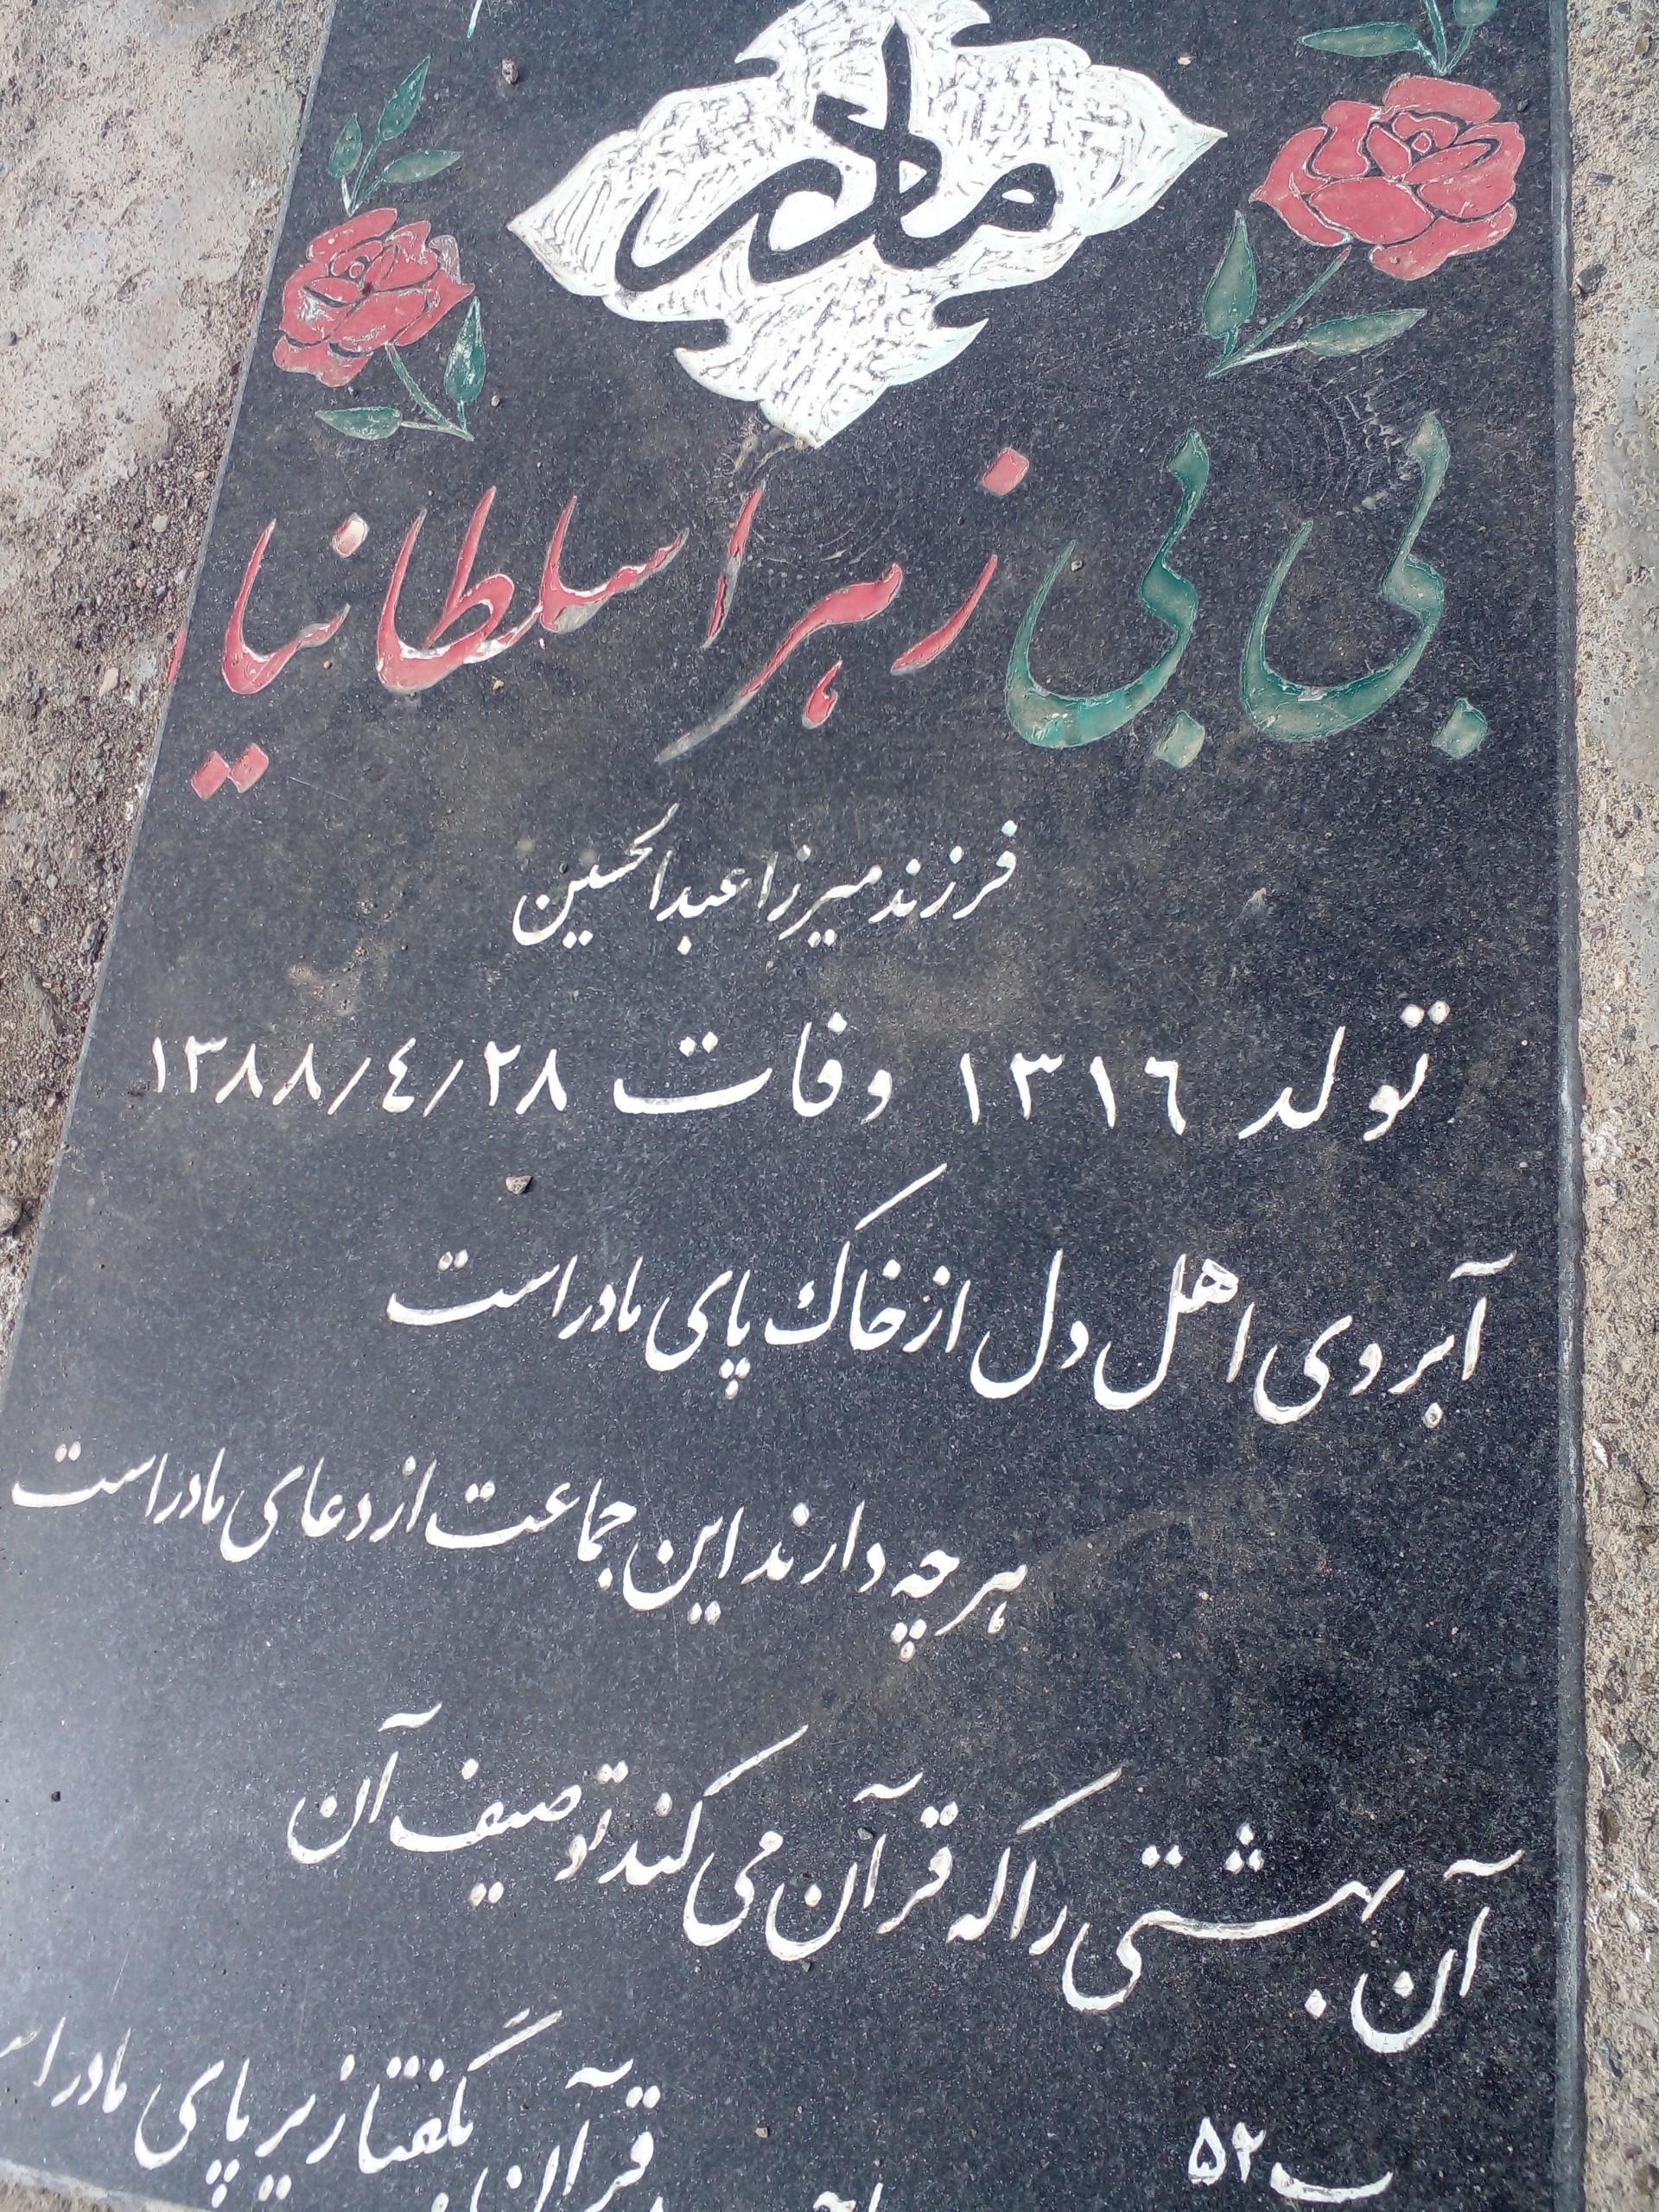 مادر
بی بی زهرا سلطانیا
فرزند میرزا عبدالحسین
تولد ١٣١٦ وفات ١٣٨٨/٤/٢٨
آبروی اهل دل از خاک پای مادر است
هر چه دارند این جماعت از دعای مادر است
آن بهشتی را که قرآن می کند توصیف آن
قرآن بگفتا زیر پای مادر
ب ۵۲